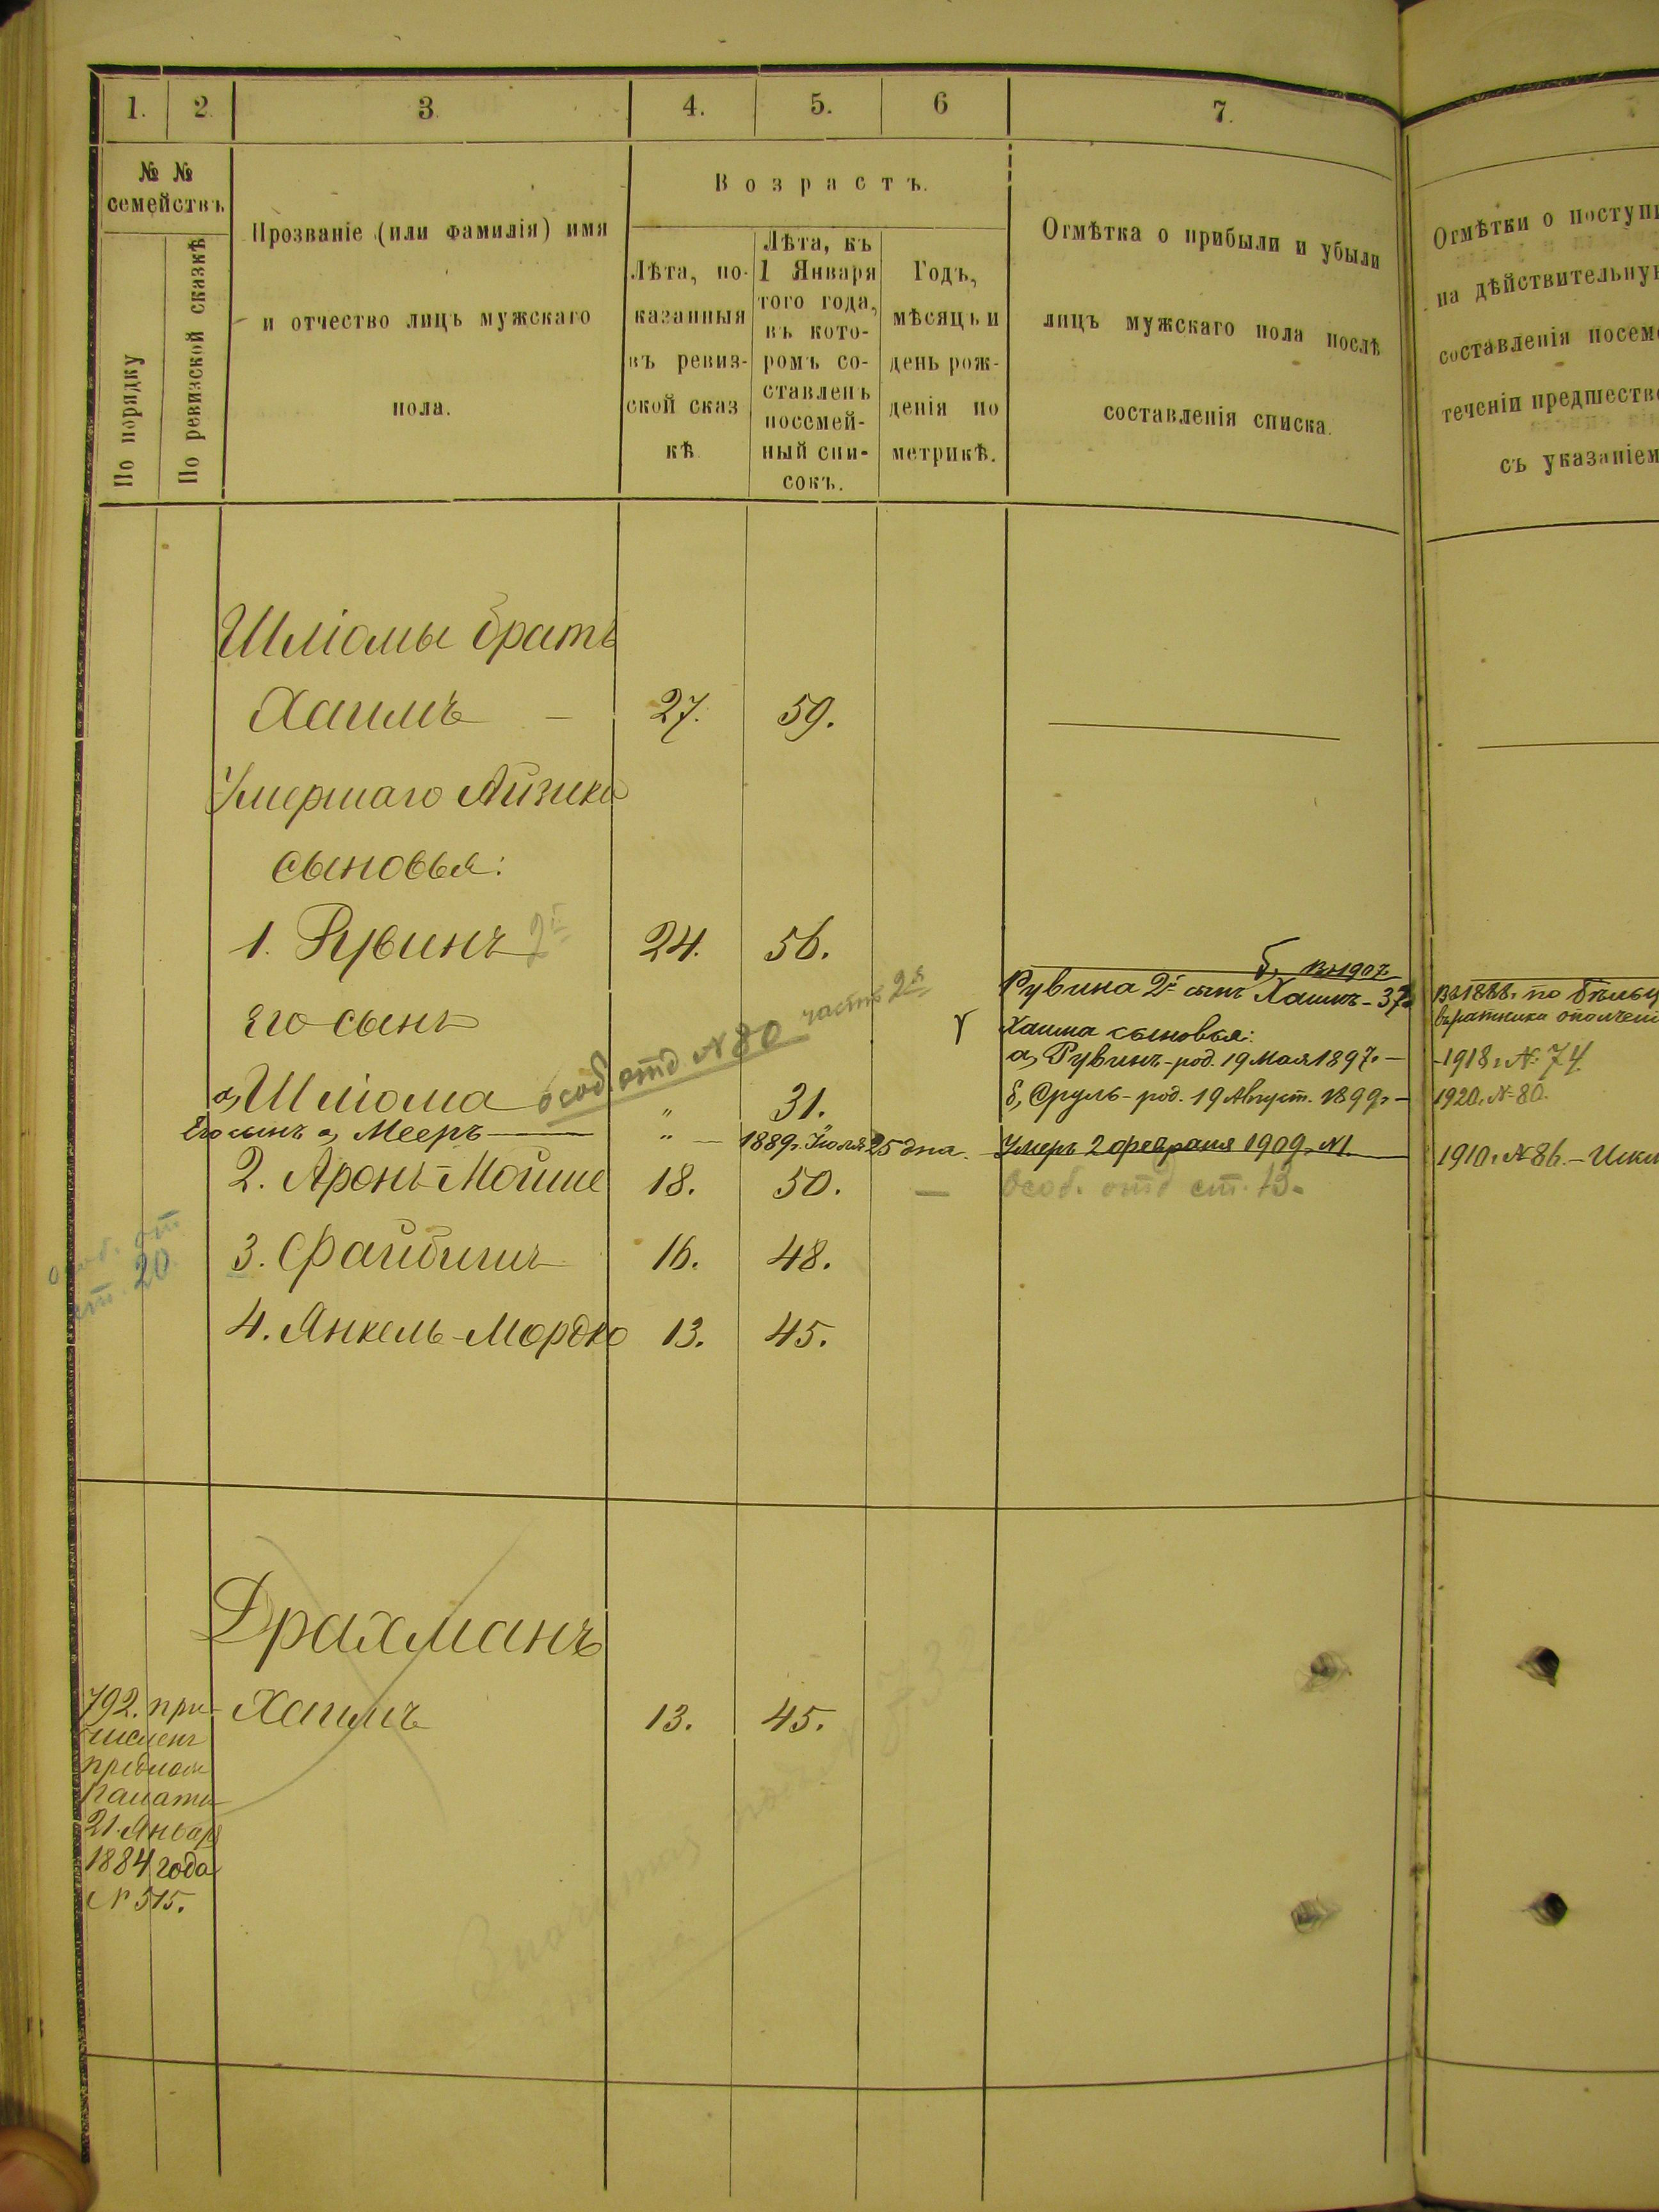 1. 2. 3. 4. 5. 6 7.
№ №
семействъ
По порядку
По ревизской сказкѣ
Прозваніе (или фамилія) имя
и отчество лицъ мужскаго
пола.
Возрастъ.
Лѣта, по-
казанныя
въ ревиз-
ской сказ
кѣ
Лѣта, къ
1 Января
того года,
въ кото-
ромъ со-
ставленъ
посемей-
ный спи-
сокъ.
Годъ,
мѣсяцъ и
день рож-
денія по
метрикѣ.
Отмѣтка о прибыли и убыли
лицъ мужскаго пола послѣ
составленія списка.
Отмѣтки о поступи
на дѣйствительну
составленія посем
теченіи предшеств
съ указаніем
Шліомы братъ
Хаимъ — 27. 59.
Умершаго Айзика
сыновья:
1. Рувинъ 2й 24. 56.
Его сынъ
а, Шліома " 31.
особ. отд. № 80 часть 2я
б, въ 1907
Рувина 2й сынъ Хаимъ - 37
Хаима сыновья:
а, Рувинъ - род. 19 Мая 1897. —
б, Сруль - род. 19 Август. 1899. —
въ 1888. по
ратники ополчен
- 1918 г. № 74.
1920. № 80.
Его сынъ а, Мееръ — " — 1889 г. Іюля 25 дня. Умеръ 2 февраля 1909. №1. 1910. № 86. —
2. Аронъ-Мойше 18. 50. — Особ. отд ст. 13.
3. Файбишъ 16. 48.
особ. от
ст. 20
4. Янкель-Мордко 13. 45.
Драхманъ
Хаимъ 13. 45.
792. при-
численъ
Палаты
21. Январ
1884 года
№ 515.